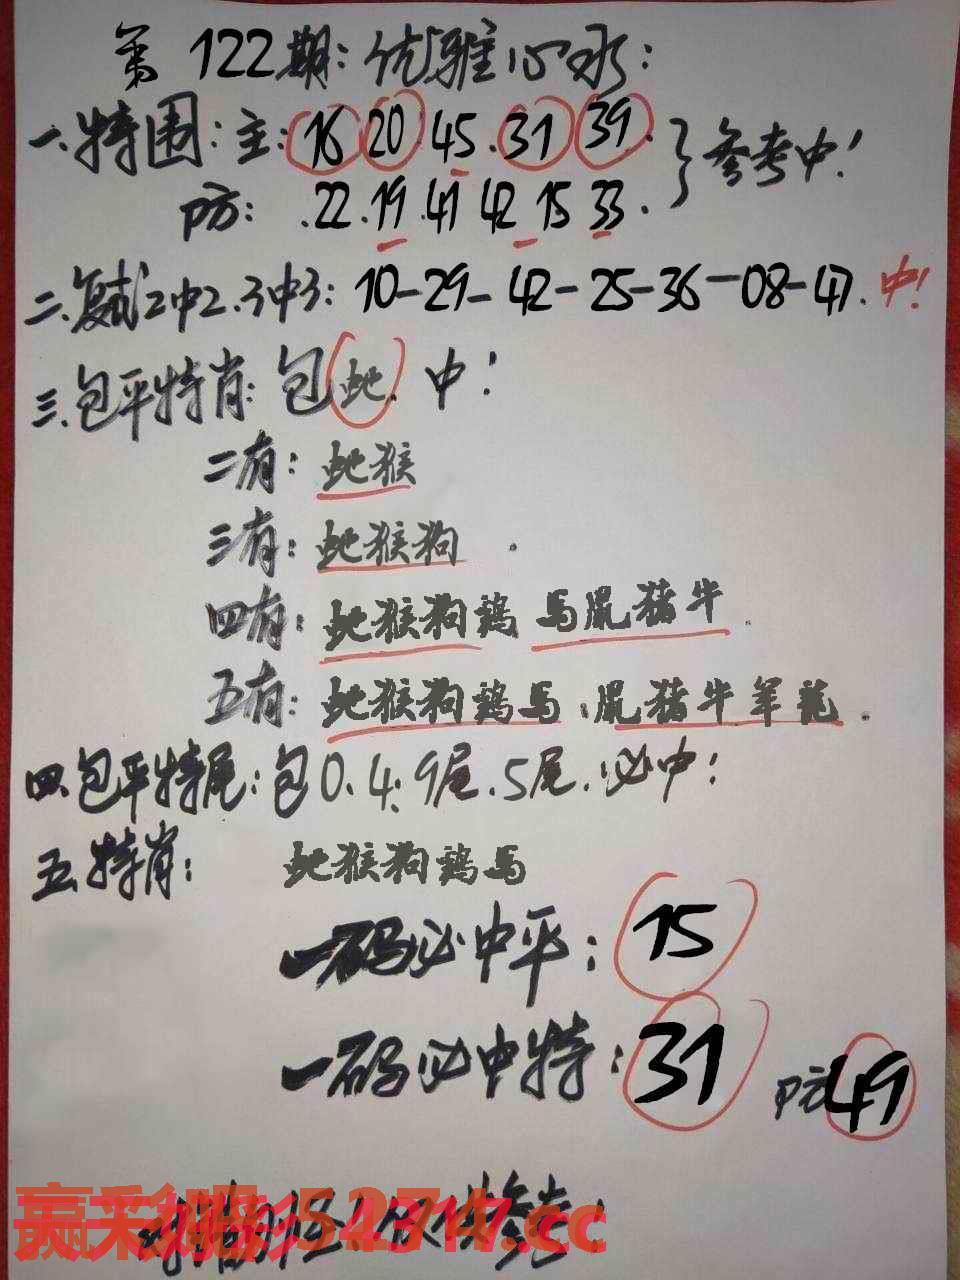 第122期:优雅心水:
一.特围:主:16 20 45.31 39.}参考中!
防:.22.19.41 42 15 33.
二.复试2中2.3中3:10-29-42-25-36-08-47.中!
三.包平特肖:包蛇.中!
二有:蛇猴
三有:蛇猴狗.
四有:蛇猴狗鸡 马鼠猪牛.
五有:蛇猴狗鸡马.鼠猪牛羊龙.
四.包平特尾:包0.4.9尾.5尾.必中!
五.特肖:蛇猴狗鸡马
一码必中平:15
一码必中特:31 防49